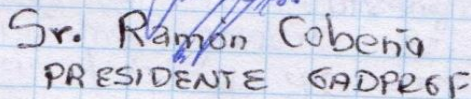 Sr. Ramón Cobeña
PRESIDENTE GADPRGF